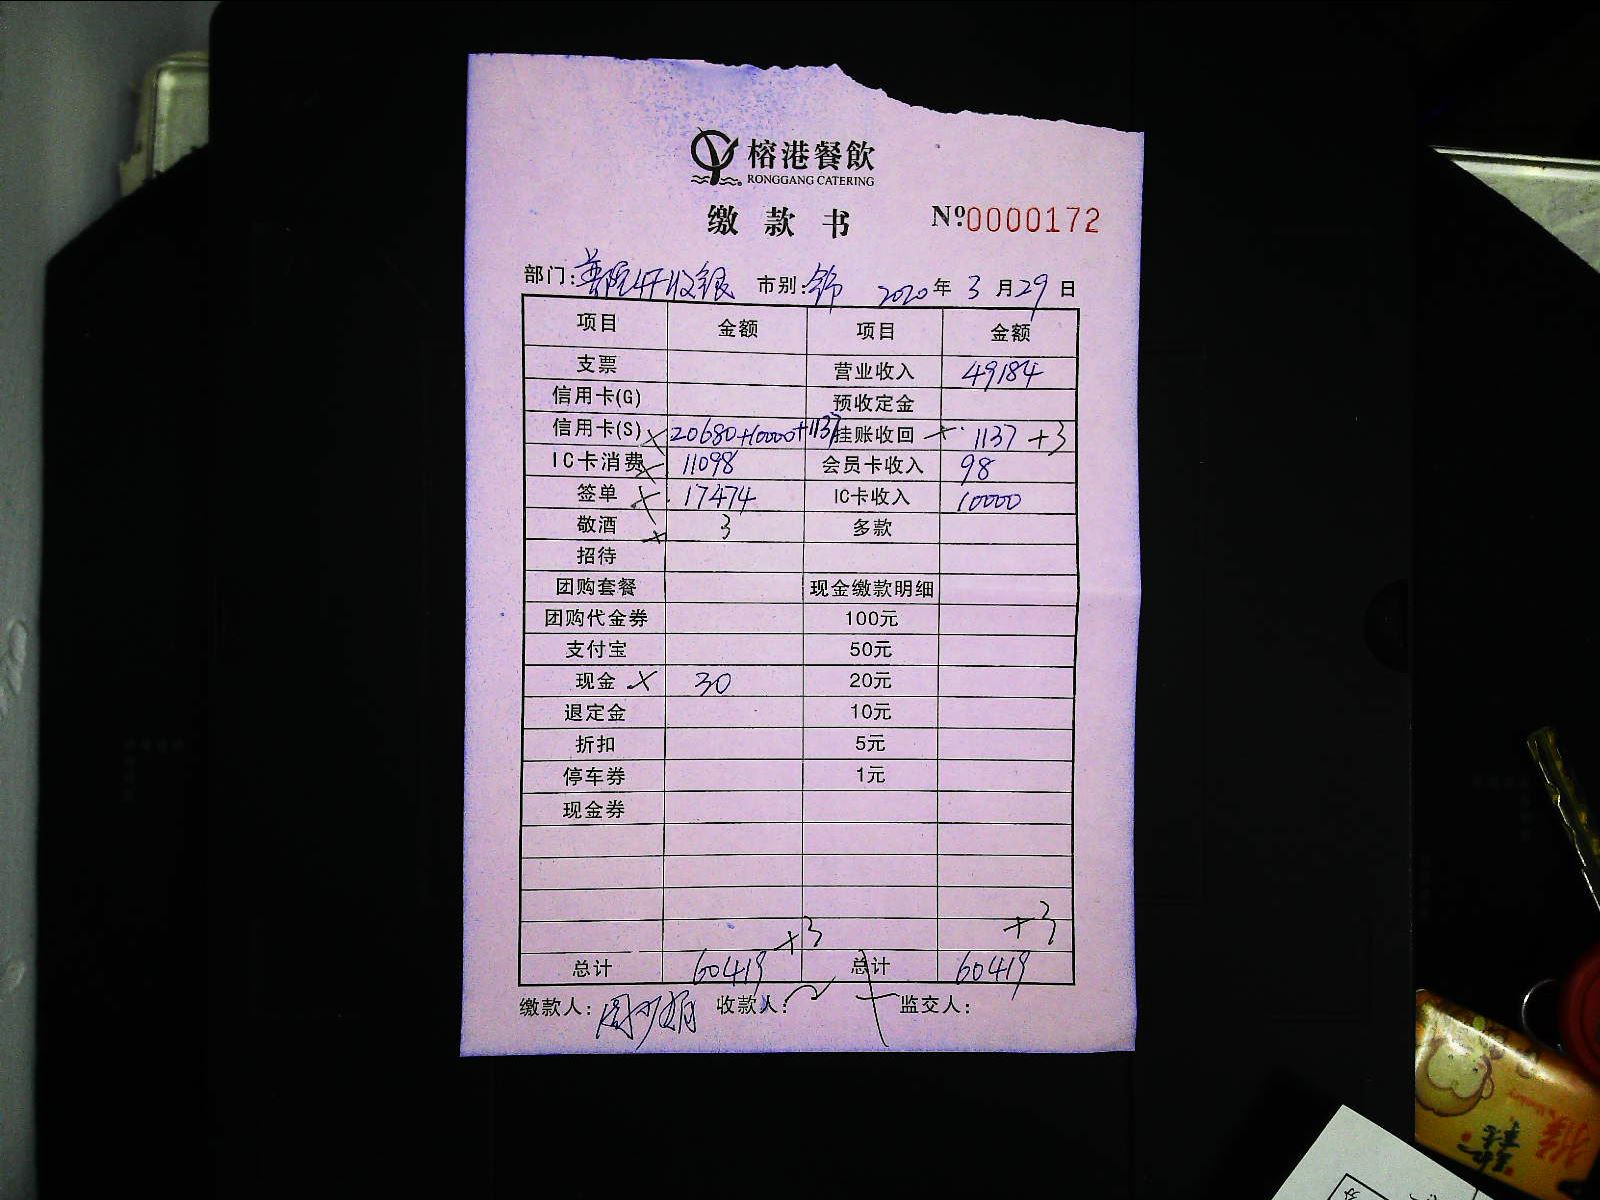 榕港餐飲
RONGGANG CATERING
缴款书 №0000172
部门: 市别: 2020年3月29日
项目 金额 项目 金额
支票 营业收入 49184
信用卡(G) 预收定金
信用卡(S) 20680+10000+1137 挂账收回 1137 +3
IC卡消费 11098 会员卡收入 98
签单 17474 IC卡收入 10000
敬酒 3 多款
招待
团购套餐 现金缴款明细
团购代金券 100元
支付宝 50元
现金 30 20元
退定金 10元
折扣 5元
停车券 1元
现金券
+3 +3
总计 60419 总计 60419
缴款人: 收款人: 监交人: